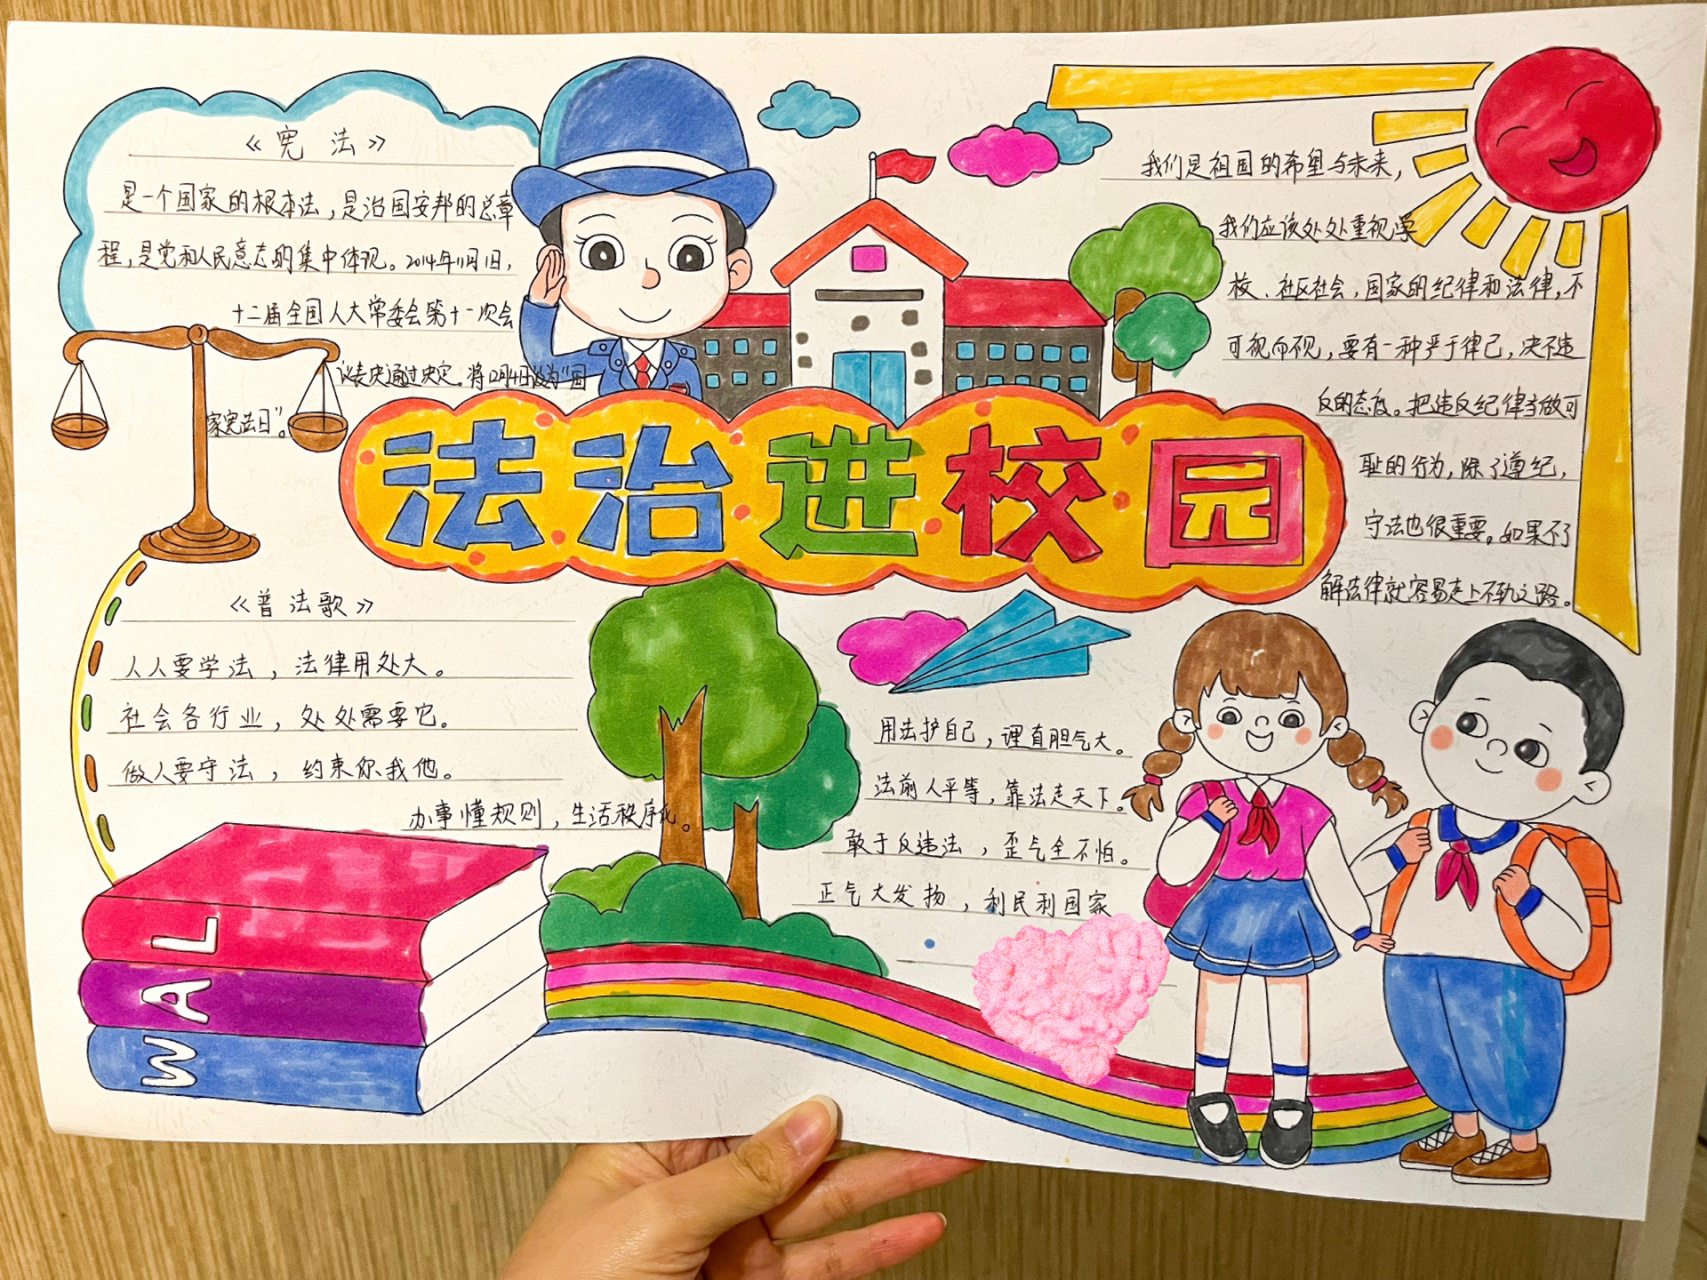 《宪法》
是一个国家的根本法，是治国安邦的总章
程，是党和人民意志的集中体现。2014年11月1日，
十二届全国人大常委会第十一次会
议表决通过决定。将12月4日设为“国
家宪法日”。
我们是祖国的希望与未来，
我们应该处处重视学
校、社区社会，国家的纪律和法律，不
可视而不见，要有一种严于律己，决不违
反的态度。把违反纪律当做可
耻的行为，除了遵纪，
守法也很重要。如果不了
解法律就容易走上不轨之路。
法治进校园
《普法歌》
人人要学法，法律用处大。
社会各行业，处处需要它。
做人要守法，约束你我他。
办事懂规则，生活秩序化。
用法护自己，理直胆气大。
法前人平等，靠法走天下。
敢于反违法，歪气全不怕。
正气大发扬，利民利国家
LAW